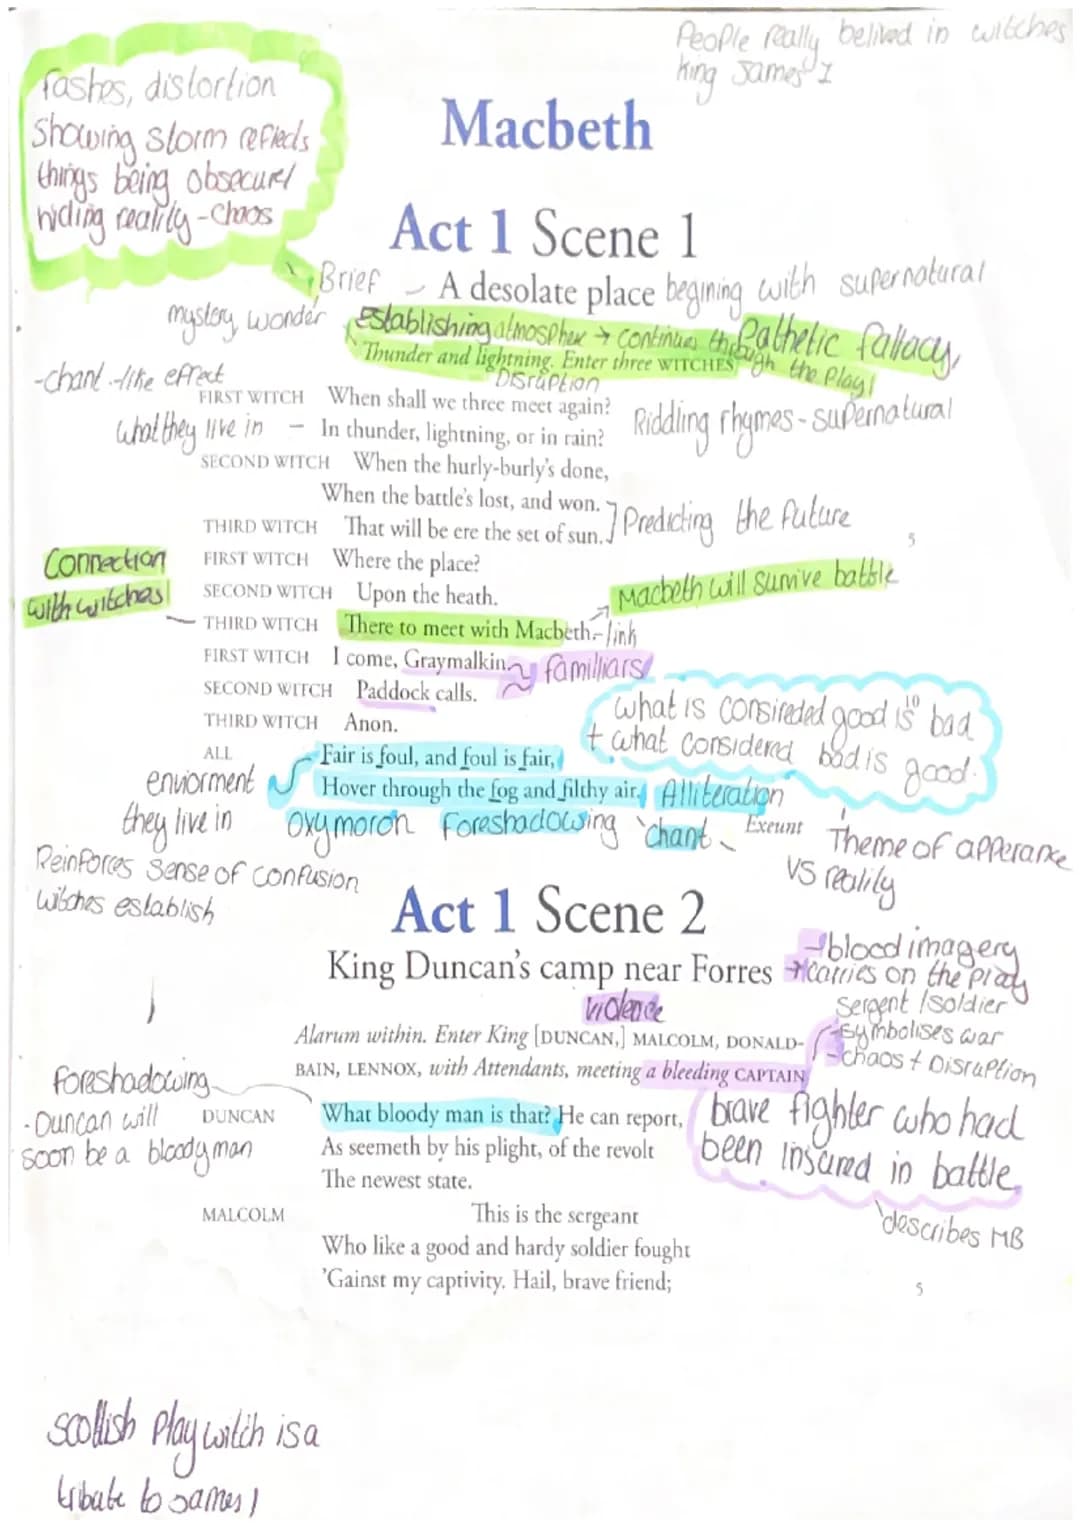 People really belived in witches
King James I
fashes, distortion
Showing storm reflects
things being obsecure/
hiding reality - Chaos
Macbeth
Act 1 Scene 1
Brief - A desolate place begining with supernatural
mystery, wonder
Establishing atmospher → continues through the Play!
Pathetic fallacy,
Thunder and lightning. Enter three WITCHES
Disruption
-chant-like effect
FIRST WITCH When shall we three meet again?
what they live in - In thunder, lightning, or in rain?
Riddling rhymes - supernatural
SECOND WITCH When the hurly-burly's done,
When the battle's lost, and won.
THIRD WITCH That will be ere the set of sun.
Predicting the future
5
FIRST WITCH Where the place?
Connection
with witches
SECOND WITCH Upon the heath.
Macbeth will survive battle
THIRD WITCH There to meet with Macbeth. - link
FIRST WITCH I come, Graymalkin.
familliars
SECOND WITCH Paddock calls.
THIRD WITCH Anon.
10
what is consireded good is bad
+ what considered bad is good.
ALL Fair is foul, and foul is fair,
Hover through the fog and filthy air. Alliteration
enviorment
they live in
Oxymoron Foreshadowing chant
Exeunt
Theme of apperance
vs reality
Reinforces sense of confusion
witches establish
Act 1 Scene 2
King Duncan's camp near Forres
- blood imagery
→ carries on the play
violence
Sergent / soldier
- symbolises war
- chaos + Disruption
Alarum within. Enter King [DUNCAN,] MALCOLM, DONALD-
BAIN, LENNOX, with Attendants, meeting a bleeding CAPTAIN
foreshadowing
- Duncan will
soon be a bloody man
DUNCAN What bloody man is that? He can report,
As seemeth by his plight, of the revolt
The newest state.
brave fighter who had
been insured in battle.
describes MB
MALCOLM This is the sergeant
Who like a good and hardy soldier fought
'Gainst my captivity. Hail, brave friend;
5
scottish play witch is a
tribute to James I